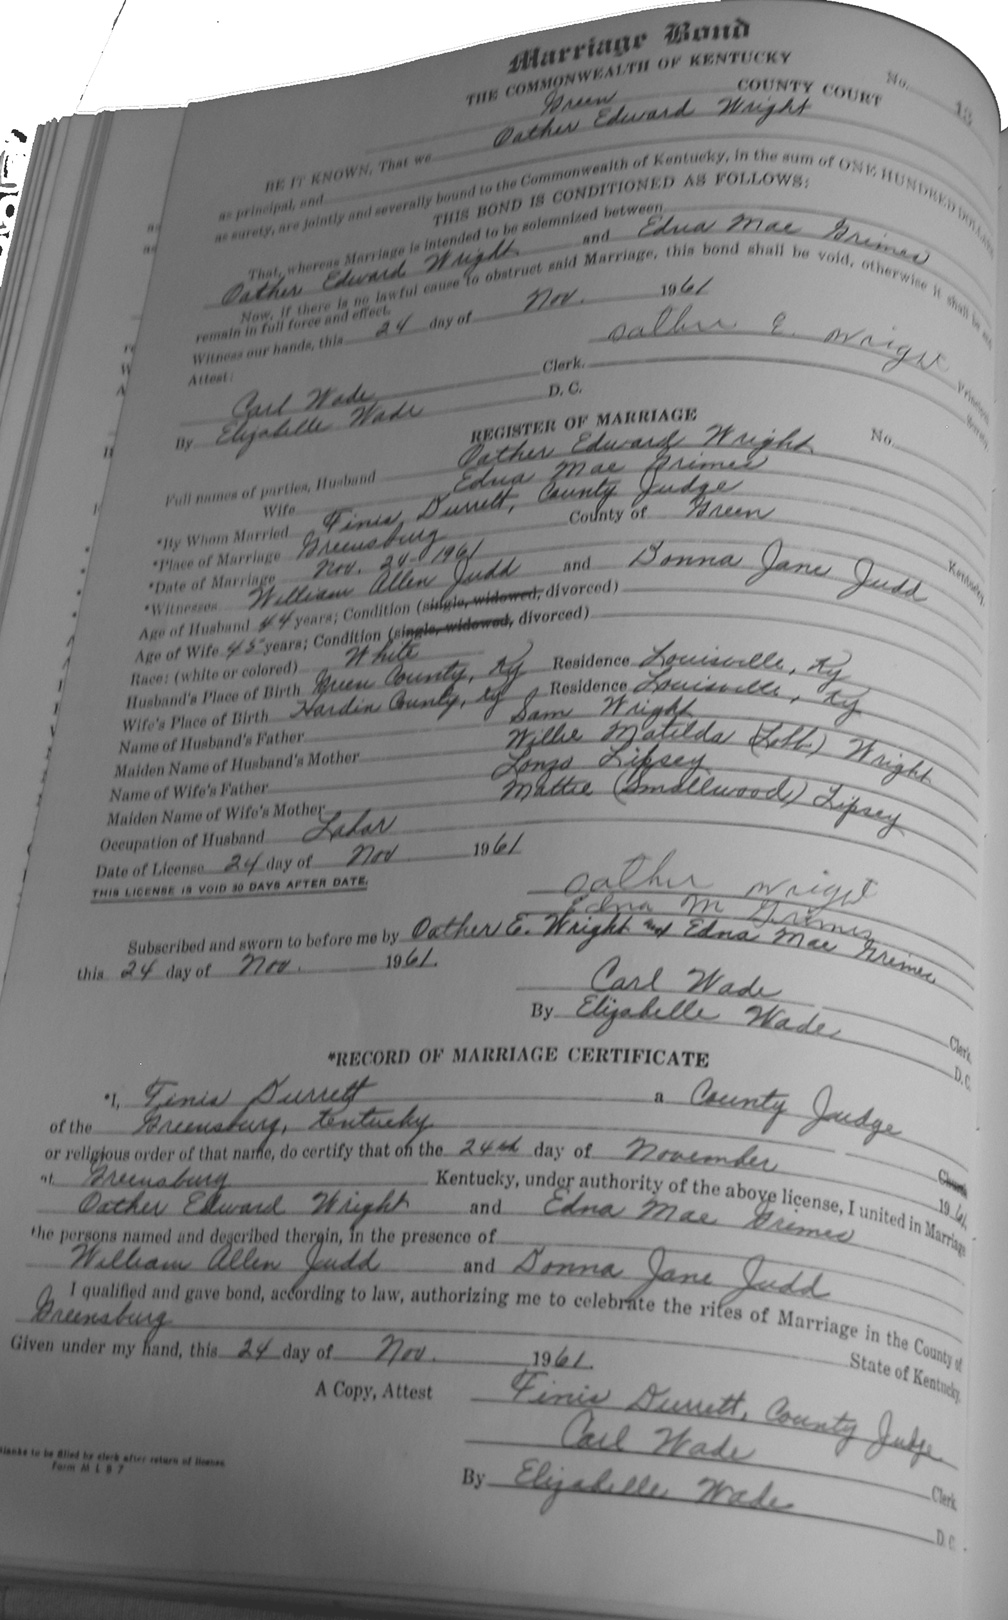 Marriage Bond
THE COMMONWEALTH OF KENTUCKY
No. 13
Green COUNTY COURT
BE IT KNOWN, That we Oather Edward Wright
as principal, and
as surety, are jointly and severally bound to the Commonwealth of Kentucky, in the sum of ONE HUNDRED DOLLARS
THIS BOND IS CONDITIONED AS FOLLOWS:
That, whereas Marriage is intended to be solemnized between
Oather Edward Wright and Edna Mae Grimes
Now, if there is no lawful cause to obstruct said Marriage, this bond shall be void, otherwise it shall be and
remain in full force and effect.
Witness our hands, this 24 day of Nov. 1961
Oather E. Wright Principal
Attest:
Surety
Carl Wade Clerk.
By Elizabelle Wade D. C.
REGISTER OF MARRIAGE
No.
Full names of parties, Husband Oather Edward Wright
Wife Edna Mae Grimes
*By Whom Married Finis Durrett, County Judge
*Place of Marriage Greensburg County of Green Kentucky.
*Date of Marriage Nov. 24-1961
*Witnesses William Allen Judd and Donna Jane Judd
Age of Husband 44 years; Condition (single, widowed, divorced)
Age of Wife 45 years; Condition (single, widowed, divorced)
Race: (white or colored) White
Husband's Place of Birth Green County, Ky Residence Louisville, Ky
Wife's Place of Birth Hardin County, Ky Residence Louisville, Ky
Name of Husband's Father Sam Wright
Maiden Name of Husband's Mother Willie Matilda (Lobb) Wright
Name of Wife's Father Lonzo Lipsey
Maiden Name of Wife's Mother Mattie (Smallwood) Lipsey
Occupation of Husband Labor
Date of License 24 day of Nov 1961
THIS LICENSE IS VOID 30 DAYS AFTER DATE.
Oather Wright
Edna M Grimes
Subscribed and sworn to before me by Oather E. Wright and Edna Mae Grimes
this 24 day of Nov. 1961.
Carl Wade Clerk
By Elizabelle Wade D. C.
*RECORD OF MARRIAGE CERTIFICATE
*I, Finis Durrett a County Judge
of the Greensburg, Kentucky Church
or religious order of that name, do certify that on the 24th day of November 1961,
at Greensburg Kentucky, under authority of the above license, I united in Marriage
Oather Edward Wright and Edna Mae Grimes
the persons named and described therein, in the presence of
William Allen Judd and Donna Jane Judd
I qualified and gave bond, according to law, authorizing me to celebrate the rites of Marriage in the County of
Greensburg State of Kentucky.
Given under my hand, this 24 day of Nov. 1961.
Finis Durrett, County Judge
A Copy, Attest
Carl Wade Clerk
By Elizabelle Wade D. C.
to be filled by clerk after return of license
Form M L B 7